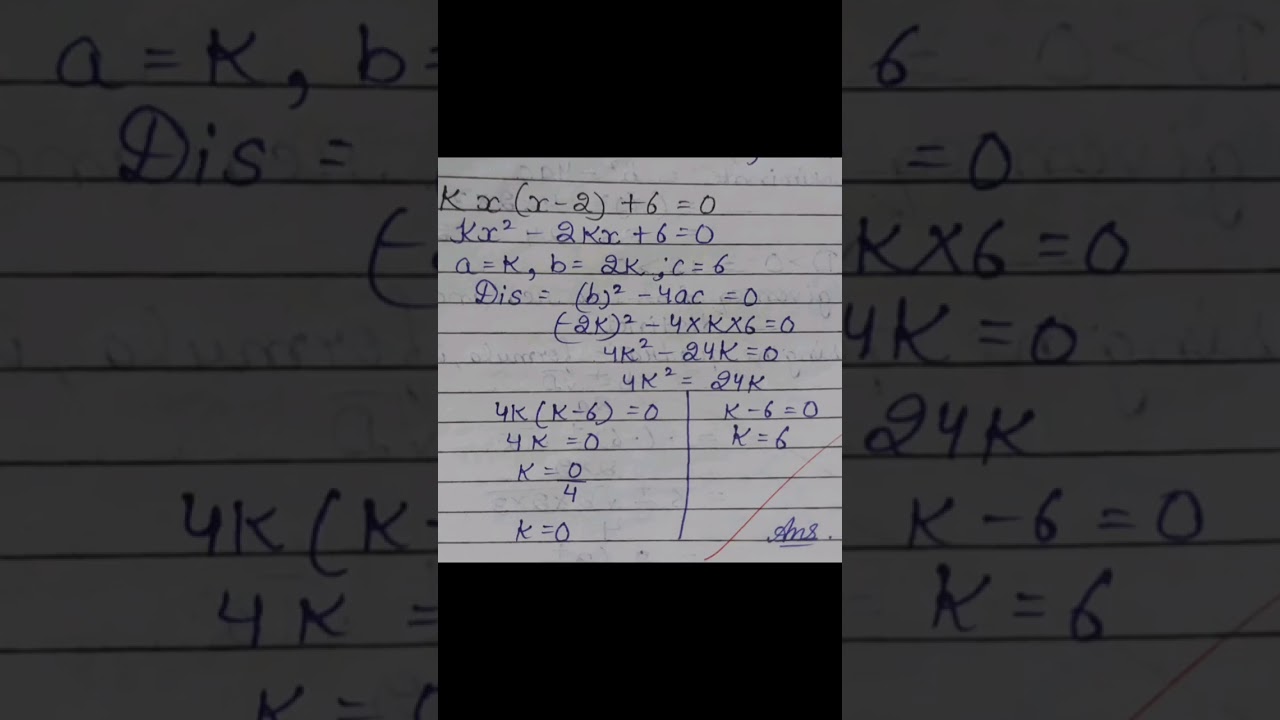 K x (x-2) + 6 = 0
Kx² - 2Kx + 6 = 0
a = K, b = 2K, c = 6
Dis = (b)² - 4ac = 0
(-2K)² - 4×K×6 = 0
4K² - 24K = 0
4K² = 24K
4K (K-6) = 0
4K = 0
K = 0/4
K = 0
K - 6 = 0
K = 6
Ans.